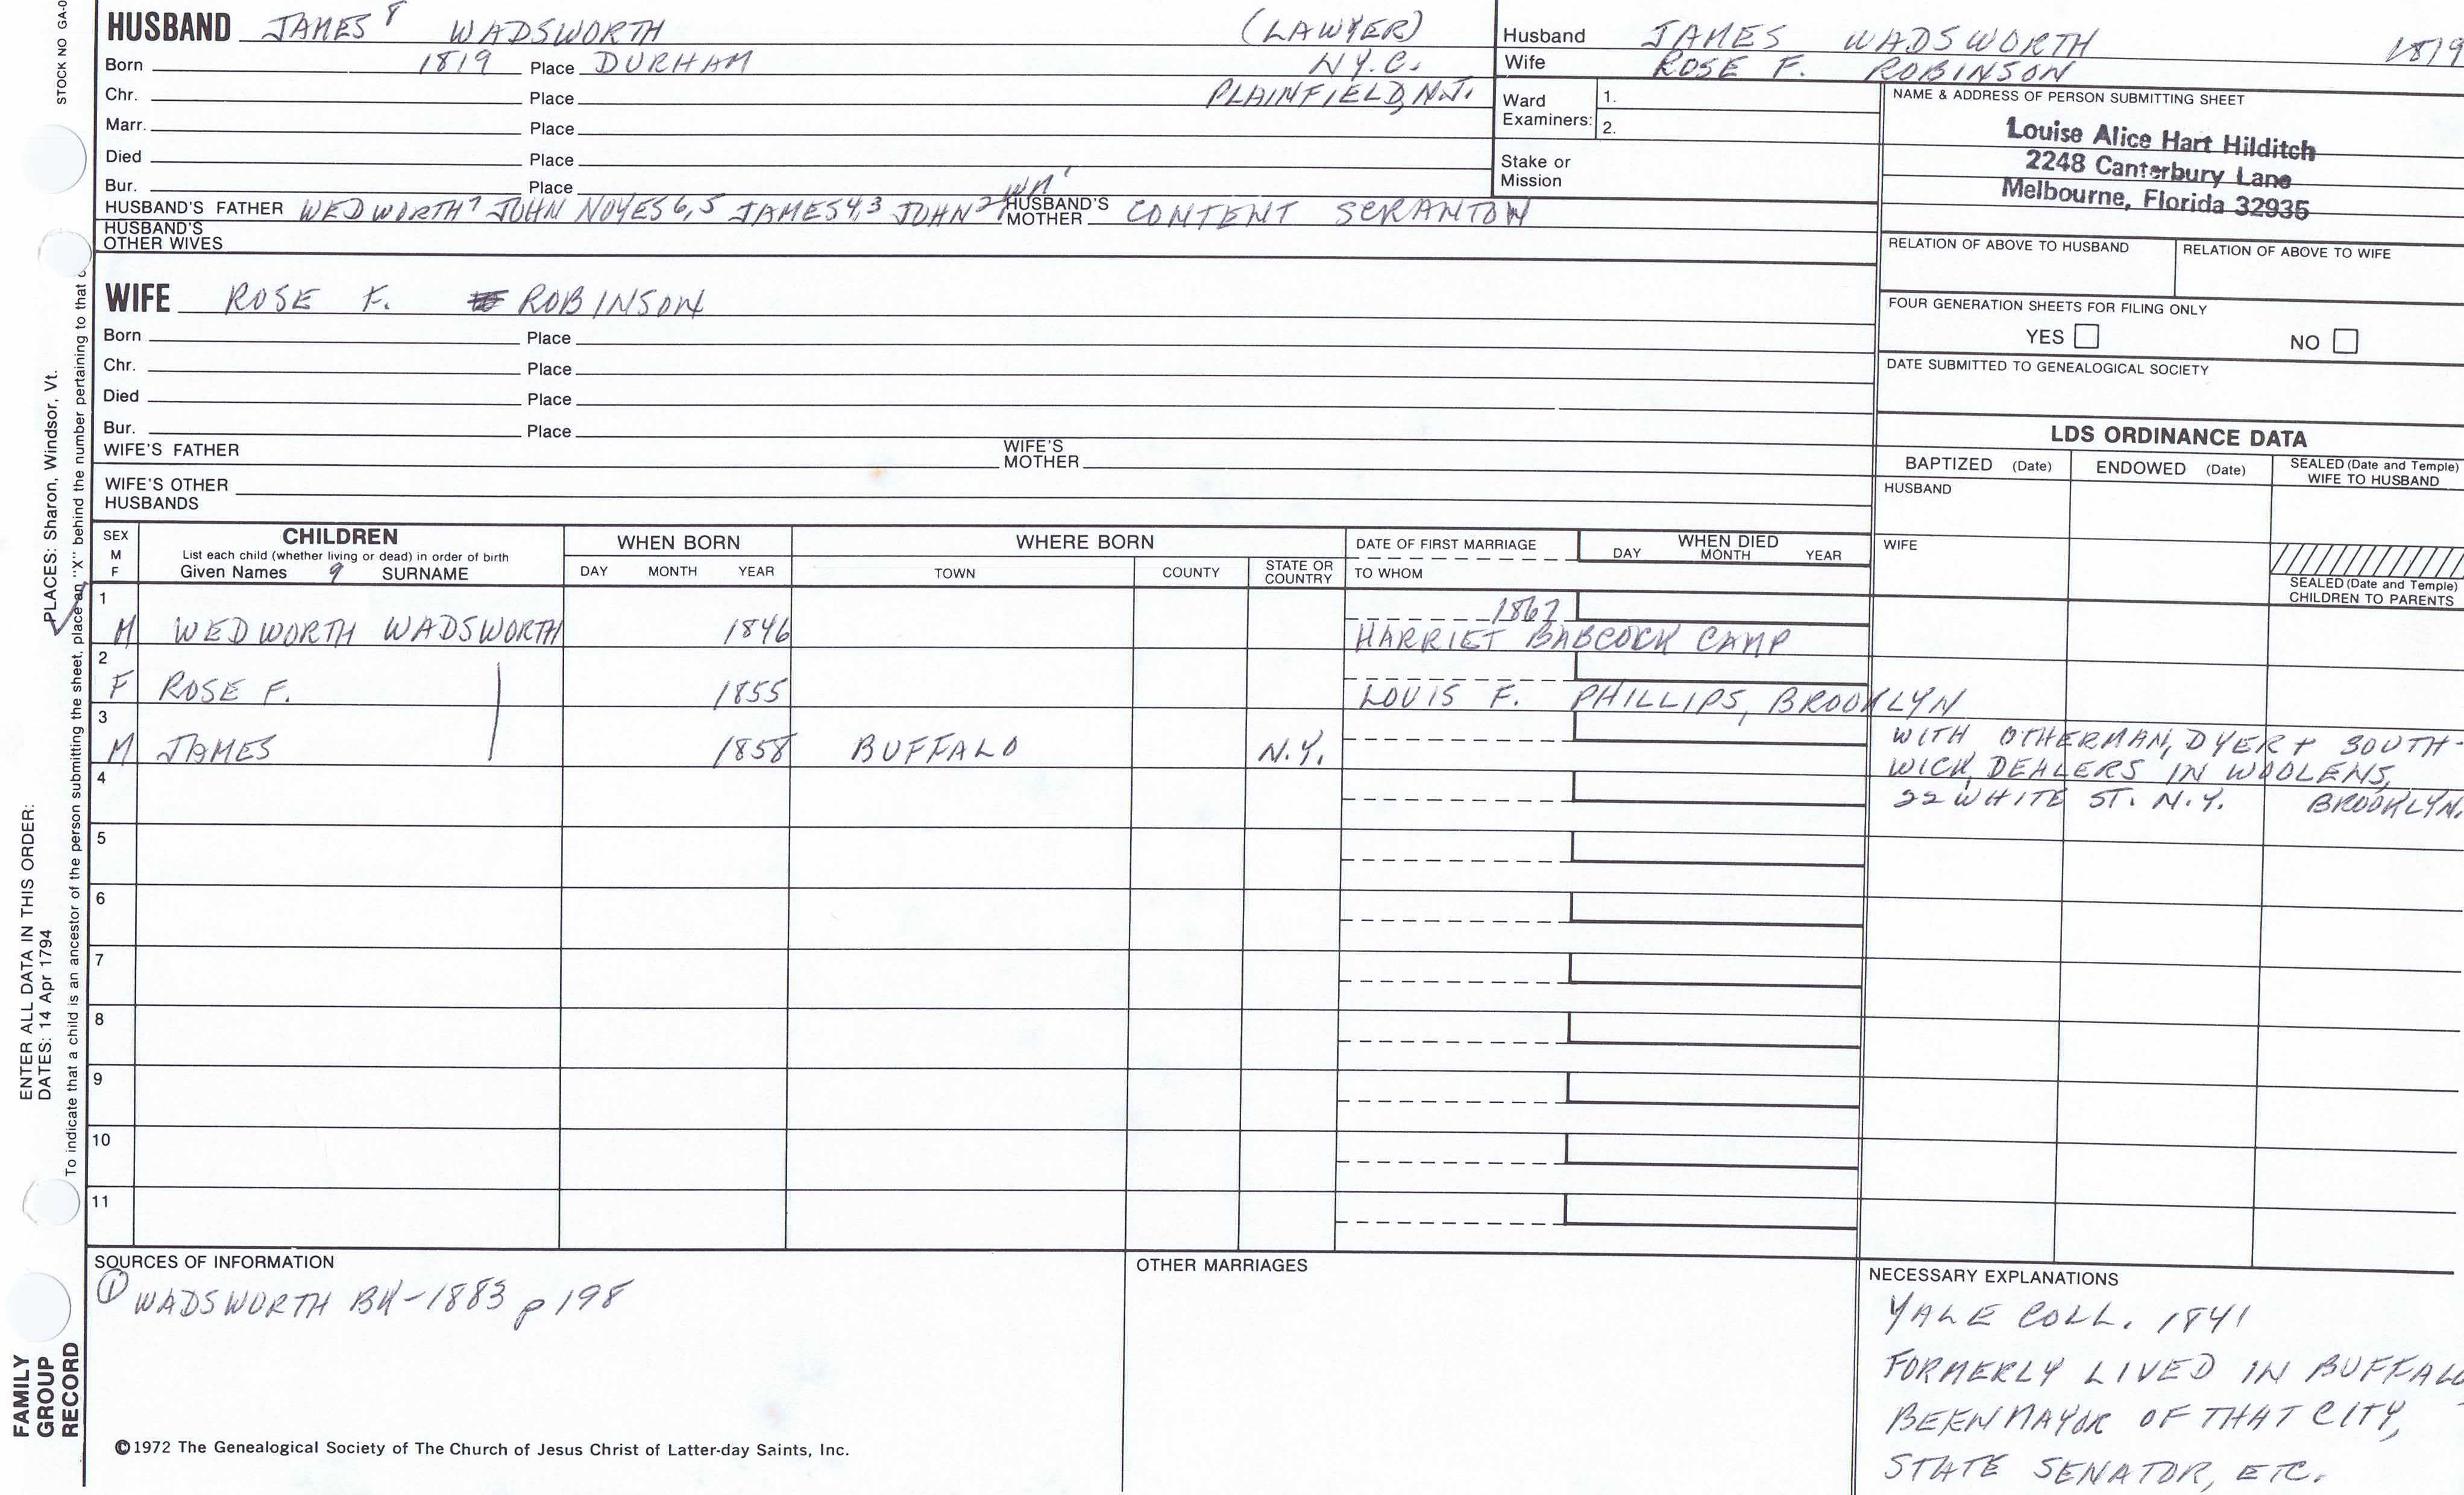 STOCK NO GA-0
HUSBAND JAMES 8 WADSWORTH (LAWYER)
Born 1819 Place DURHAM N.Y.C.
Chr. Place PLAINFIELD, N.J.
Marr. Place
Died Place
Bur. Place
HUSBAND'S FATHER WEDWORTH 7 JOHN NOYES 6,5 JAMES 4,3 JOHN 2 WM 1 HUSBAND'S MOTHER CONTENT SCRANTON
HUSBAND'S OTHER WIVES
Husband JAMES WADSWORTH 1819
Wife ROSE F. ROBINSON
Ward Examiners: 1.
2.
Stake or Mission
NAME & ADDRESS OF PERSON SUBMITTING SHEET
Louise Alice Hart Hilditch
2248 Canterbury Lane
Melbourne, Florida 32935
RELATION OF ABOVE TO HUSBAND RELATION OF ABOVE TO WIFE
FOUR GENERATION SHEETS FOR FILING ONLY
YES NO
DATE SUBMITTED TO GENEALOGICAL SOCIETY
WIFE ROSE F. ROBINSON
Born Place
Chr. Place
Died Place
Bur. Place
WIFE'S FATHER WIFE'S MOTHER
WIFE'S OTHER HUSBANDS
LDS ORDINANCE DATA
BAPTIZED (Date) ENDOWED (Date) SEALED (Date and Temple) WIFE TO HUSBAND
HUSBAND
WIFE
SEALED (Date and Temple) CHILDREN TO PARENTS
SEX M F
CHILDREN
List each child (whether living or dead) in order of birth
Given Names 9 SURNAME
WHEN BORN
DAY MONTH YEAR
WHERE BORN
TOWN COUNTY STATE OR COUNTRY
DATE OF FIRST MARRIAGE
TO WHOM
WHEN DIED
DAY MONTH YEAR
1 M WEDWORTH WADSWORTH 1846 1867
HARRIET BABCOCK CAMP
2 F ROSE F. 1855 LOUIS F. PHILLIPS, BROOKLYN
3 M JAMES 1858 BUFFALO N.Y.
WITH OTHERMAN, DYER + SOUTH-
WICK, DEALERS IN WOOLENS,
22 WHITE ST. N.Y. BROOKLYN.
4
5
6
7
8
9
10
11
SOURCES OF INFORMATION
① WADSWORTH BK-1883 p 198
OTHER MARRIAGES
NECESSARY EXPLANATIONS
YALE COLL. 1841
FORMERLY LIVED IN BUFFALO
BEEN MAYOR OF THAT CITY,
STATE SENATOR, ETC.
©1972 The Genealogical Society of The Church of Jesus Christ of Latter-day Saints, Inc.
ENTER ALL DATA IN THIS ORDER:
DATES: 14 Apr 1794 PLACES: Sharon, Windsor, Vt.
To indicate that a child is an ancestor of the person submitting the sheet, place an "X" behind the number pertaining to that
FAMILY
GROUP
RECORD